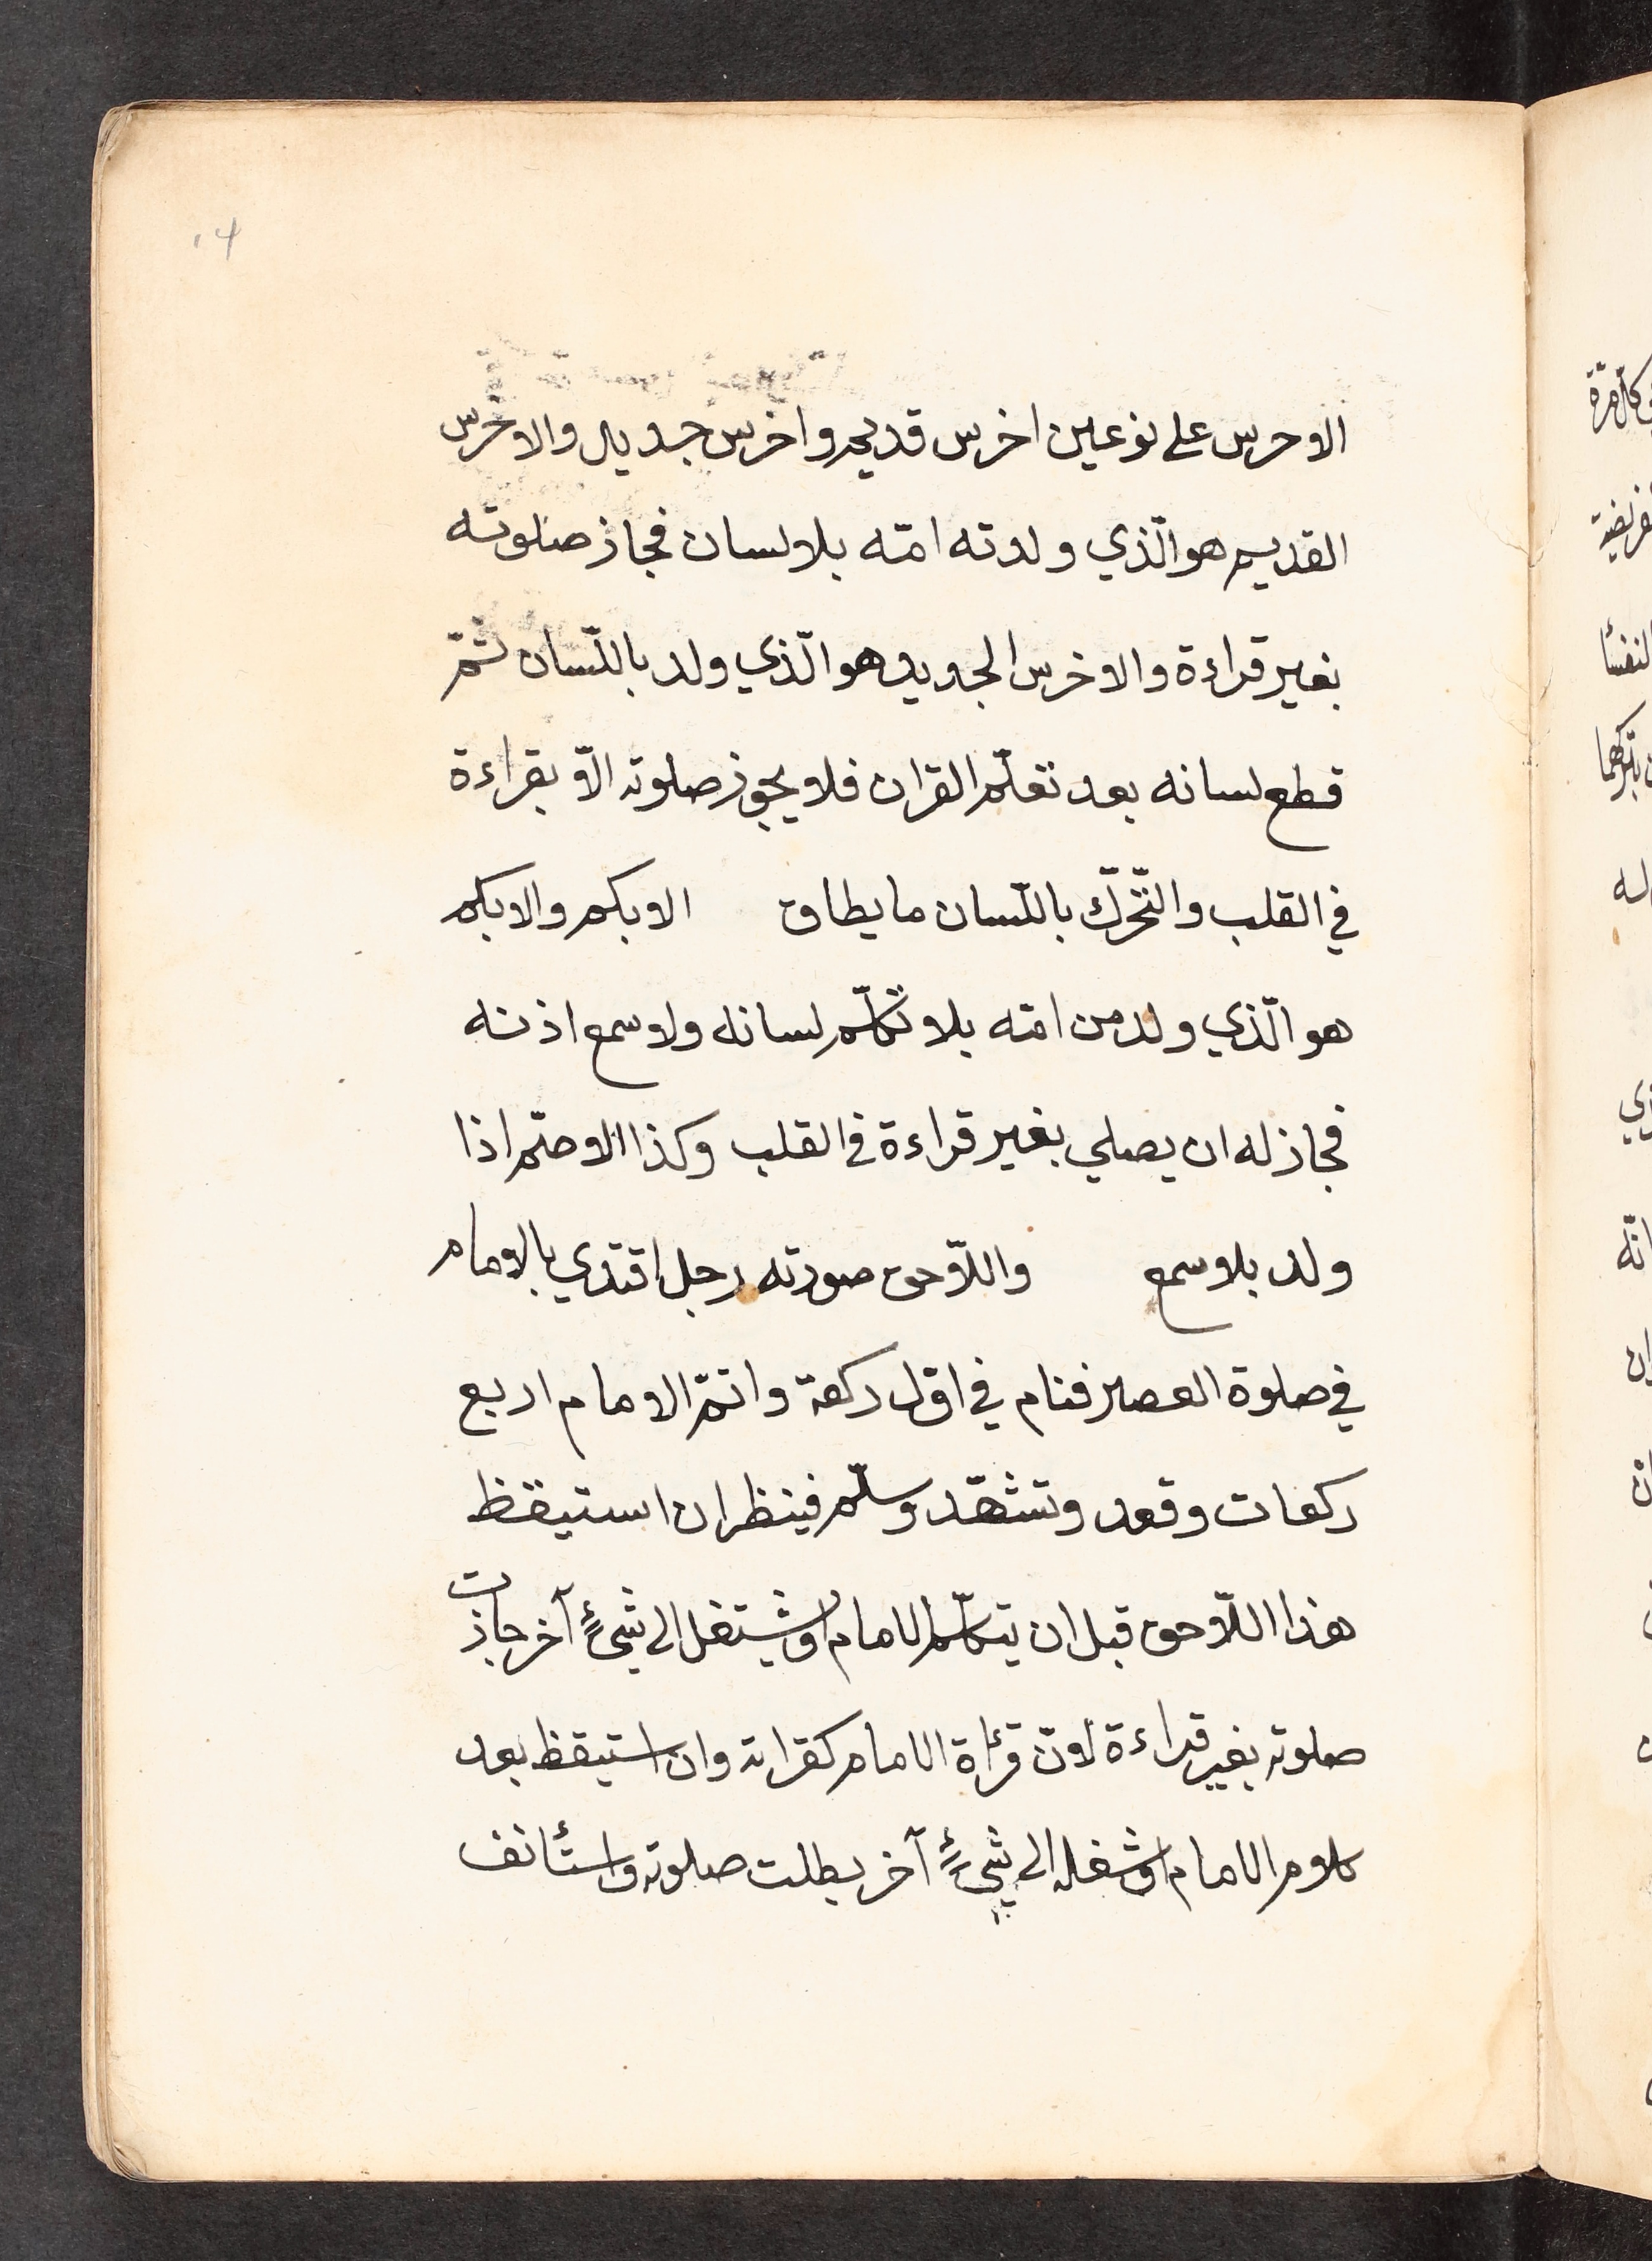 الاحرس على نوعين اخرس قديم واخرس جديد والاخرس
القديم هو الّذي ولدته امّه بلا لسان فجاز صلوته
بغير قراءة والاخرس الجديد هو الّذي ولد باللّسان ثمّ
قطع لسانه بعد تعلّم القران فلا يجوز صلوته الّا بقراءة
في القلب والتّحرّك باللّسان ما يطاق الابكم والابكم
هو الّذي ولد من امّه بلا تكلّم لسانه ولا سمع اذنه
فجاز له ان يصلي بغير قراءة في القلب وكذا الاصمّ اذا
ولد بلا سمع واللّاحق صورته رجل اقتدي بالامام
في صلوة العصر فنام في اوّل ركعة واتمّ الامام اربع
ركعات وقعد وتشهّد وسلّم فينظر ان استيقظ
هذا اللّاحق قبل ان يتكلّم الامام او يشتغل الى شيئٍ آخر جازت
صلوته بغير قراءة لانّ قرائة الامام كقراته وان استيقظ بعد
كلام الامام او شغله الى شيئٍ آخر بطلت صلوته واستأنف